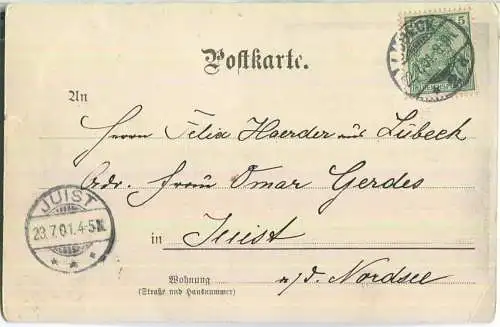 Postkarte.
LÜBECK
5
An
Herrn Felix Haerder aus Lübeck
Adr. Frau Omar Gerdes
JUIST
23.7.01.4-5N.
in Juist
Wohnung
(Straße und Hausnummer)
a/d. Nordsee